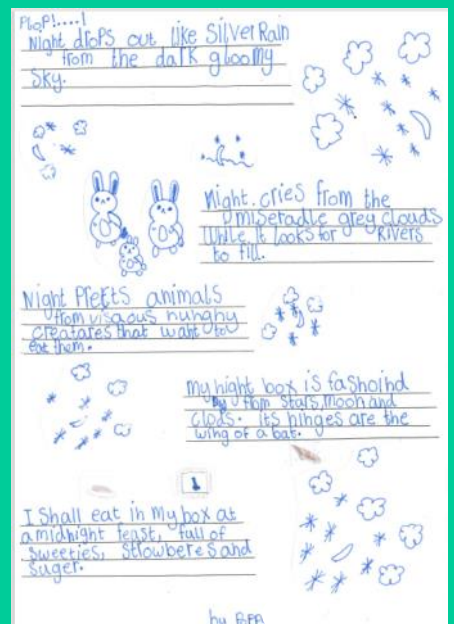 PLOP!....!
Night drops out like Silver Rain
from the dark gloomy
Sky.
Night. cries from the
miseradle grey clouds
While it looks for Rivers
to fill.
Night Pretts animals
from visaous hunghy
creatares that waht to
eat them.
my night box is fashoind
by from Stars, Mooh and
clods. its hinges are the
wing of a bat.
I Shall eat in My box at
a midnight feast, full of
Sweeties, Strowberes and
Suger.
by